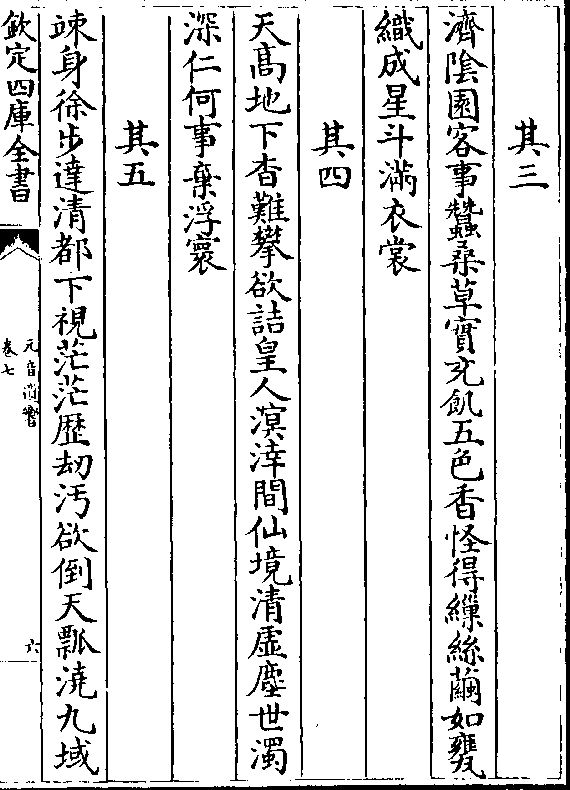 其三
濟陰園客事蠶桑草實充飢五色香怪得繅絲繭如甕
織成星斗滿衣裳
其四
天髙地下杳難攀欲詰皇人溟涬間仙境清虛塵世濁
深仁何事棄浮寰
其五
竦身徐步達清都下視茫茫歴刼汚欲倒天瓢澆九域
欽定四庫全書
元音遺響
卷七
六